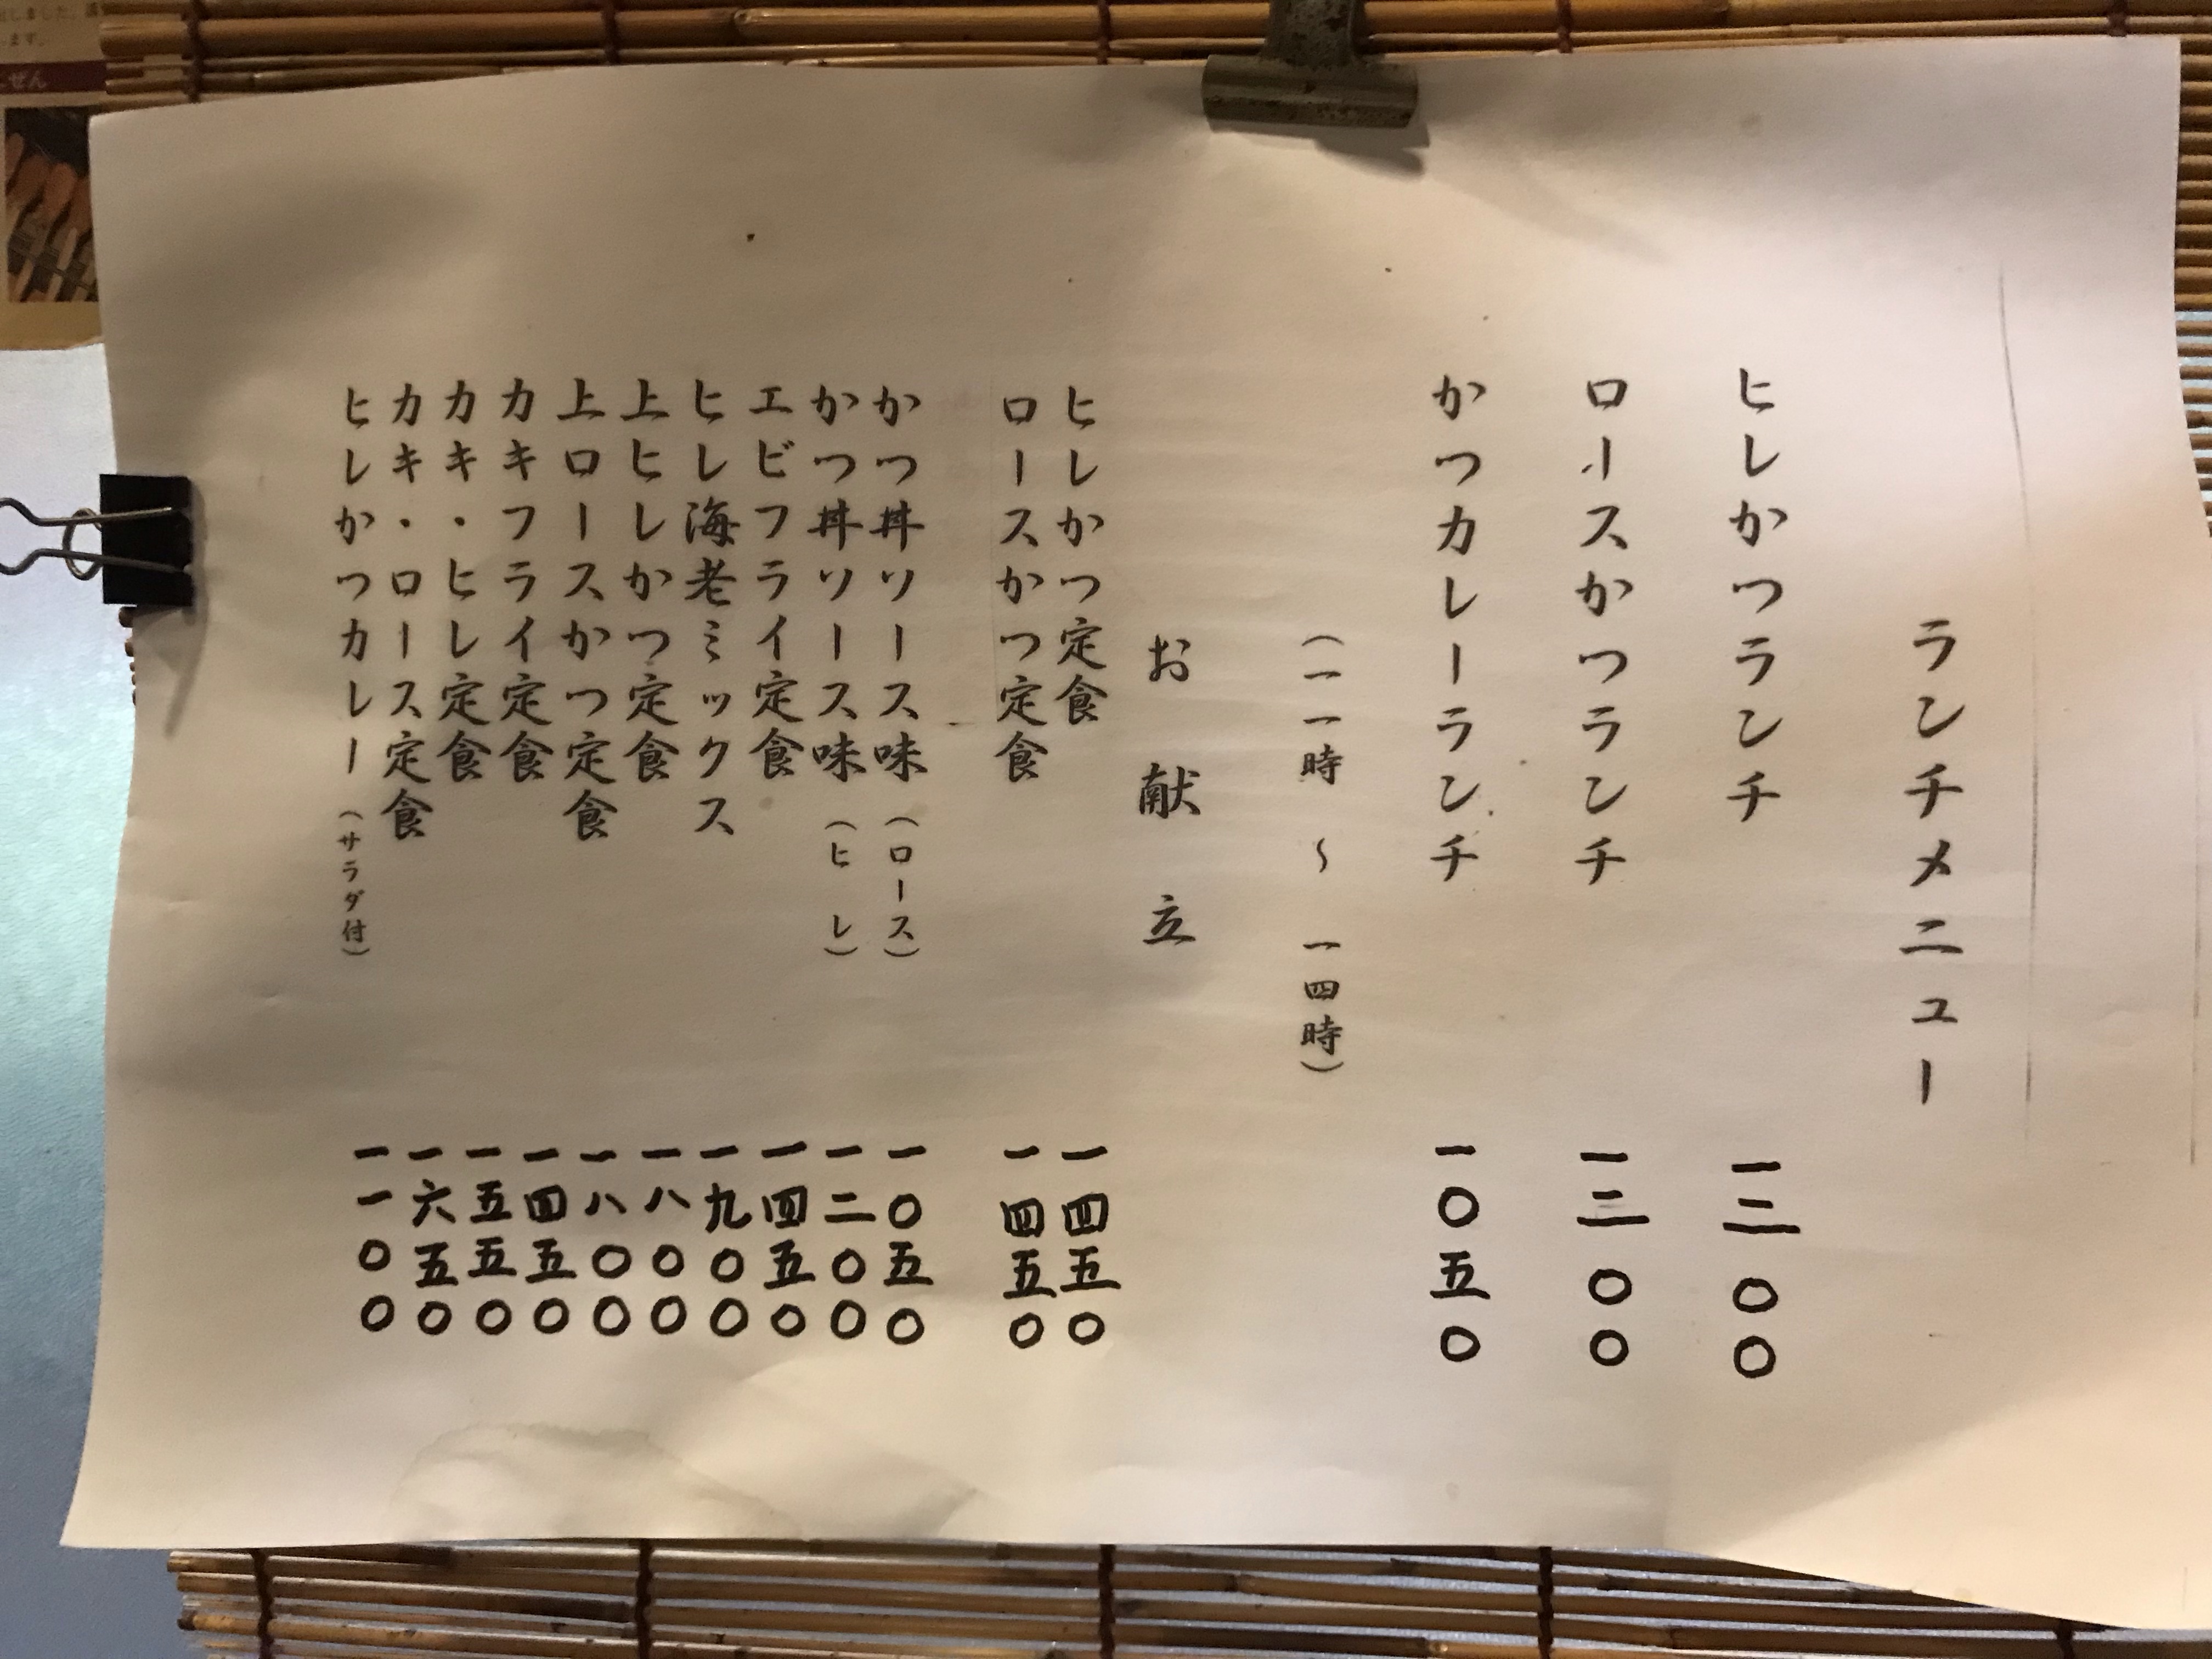 ランチメニュー
ヒレかつランチ 一三〇〇
ロースかつランチ 一三〇〇
かつカレーランチ 一〇五〇
（一一時 〜 一四時）
お献立
ヒレかつ定食 一四五〇
ロースかつ定食 一四五〇
かつ丼ソース味（ロース） 一〇五〇
かつ丼ソース味（ヒレ） 一二〇〇
エビフライ定食 一四五〇
ヒレ海老ミックス 一九〇〇
上ヒレかつ定食 一八〇〇
上ロースかつ定食 一八〇〇
カキフライ定食 一四五〇
カキ・ヒレ定食 一五五〇
カキ・ロース定食 一六五〇
ヒレかつカレー（サラダ付） 一一〇〇
しました。
ます。
ぜん